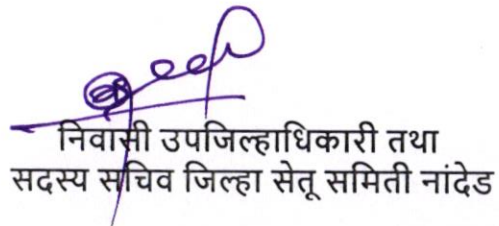 निवासी उपजिल्हाधिकारी तथा
सदस्य सचिव जिल्हा सेतू समिती नांदेड